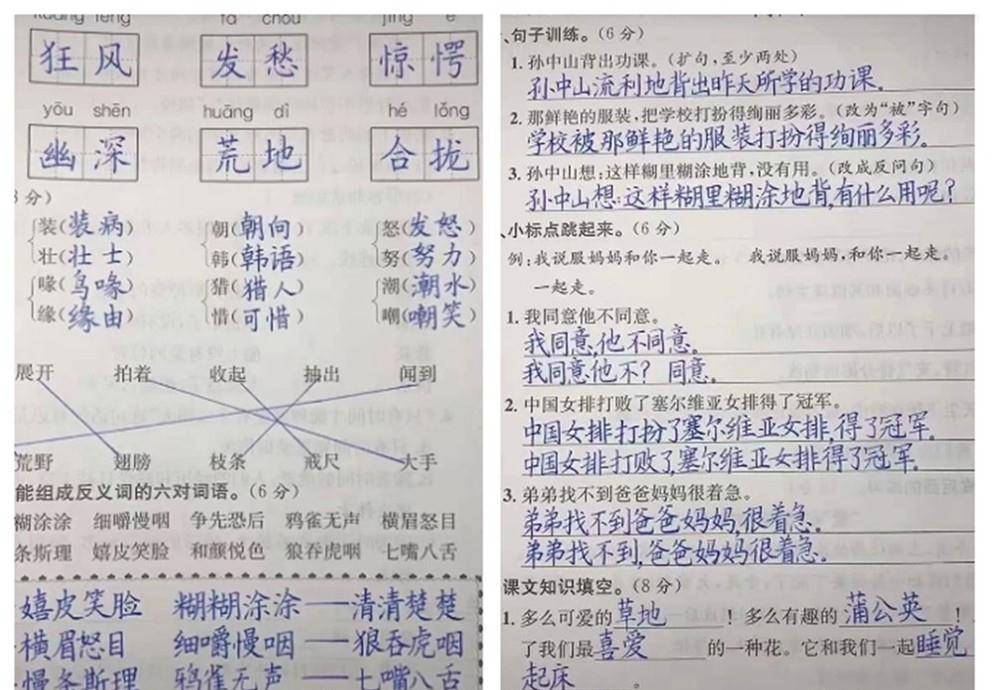 kuáng fēng fā chóu jīng è
狂风 发愁 惊愕
yōu shēn huāng dì hé lǒng
幽深 荒地 合拢
分）
装(装病) 朝(朝向) 怒(发怒)
壮(壮士) 韩(韩语) 努(努力)
喙(鸟喙) 猎(猎人) 潮(潮水)
缘(缘由) 惜(可惜) 嘲(嘲笑)
展开 拍着 收起 抽出 闻到
荒野 翅膀 枝条 戒尺 大手
能组成反义词的六对词语。(6分)
糊涂涂 细嚼慢咽 争先恐后 鸦雀无声 横眉怒目
条斯理 嬉皮笑脸 和颜悦色 狼吞虎咽 七嘴八舌
嬉皮笑脸 糊糊涂涂——清清楚楚
横眉怒目 细嚼慢咽——狼吞虎咽
慢条斯理 鸦雀无声——七嘴八舌
、句子训练。(6分)
1. 孙中山背出功课。(扩句,至少两处)
孙中山流利地背出昨天所学的功课.
2. 那鲜艳的服装,把学校打扮得绚丽多彩。(改为“被”字句)
学校被那鲜艳的服装打扮得绚丽多彩。
3. 孙中山想:这样糊里糊涂地背,没有用。(改成反问句)
孙中山想:这样糊里糊涂地背,有什么用呢?
、小标点跳起来。(6分)
例:我说服妈妈和你一起走。 我说服妈妈,和你一起走。
一起走。
1. 我同意他不同意。
我同意,他不同意。
我同意他不? 同意。
2. 中国女排打败了塞尔维亚女排得了冠军。
中国女排打扮了塞尔维亚女排,得了冠军。
中国女排打败了塞尔维亚女排得了冠军。
3. 弟弟找不到爸爸妈妈很着急。
弟弟找不到爸爸妈妈,很着急。
弟弟找不到,爸爸妈妈很着急.
课文知识填空。(8分)
1. 多么可爱的草地! 多么有趣的蒲公英!
了我们最喜爱的一种花。它和我们一起睡觉
起床。